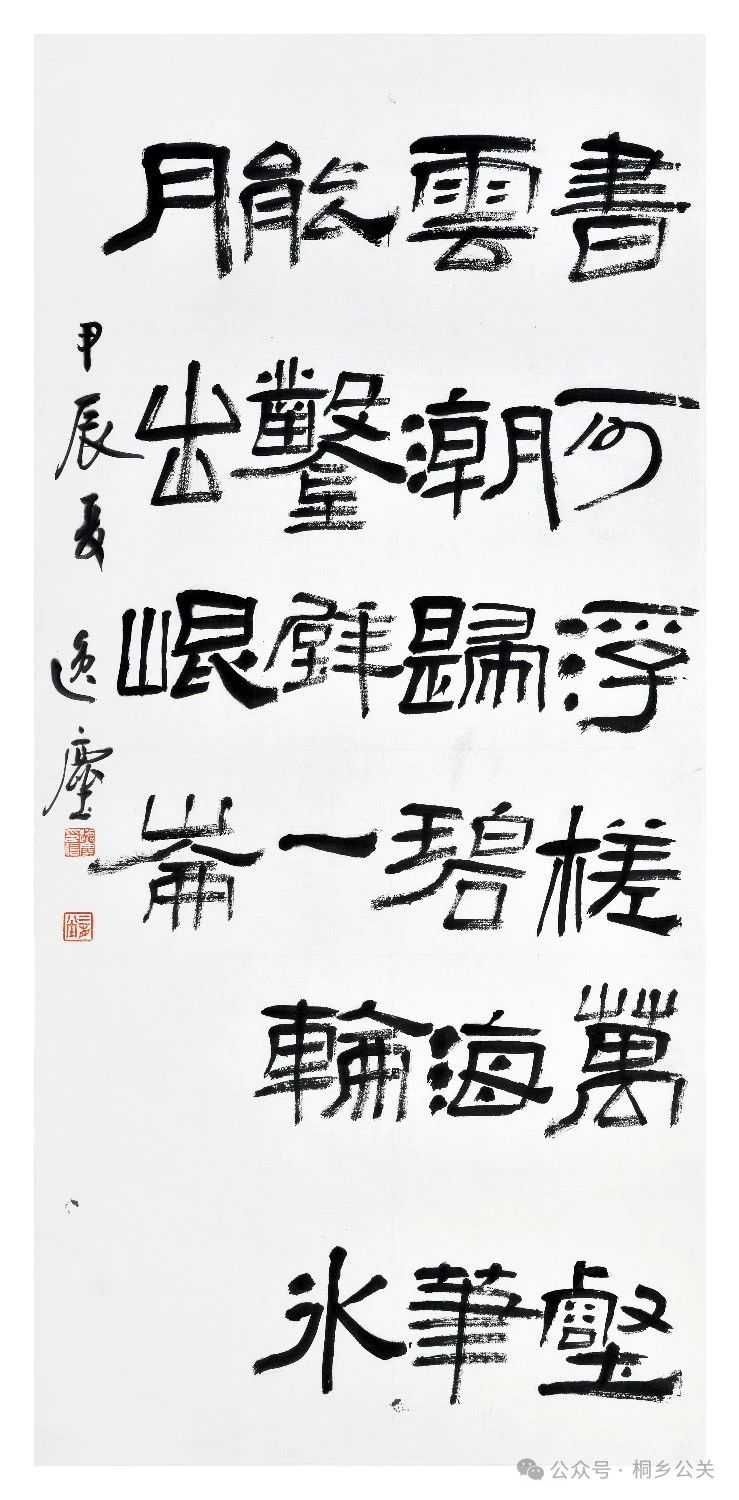 書可浮槎萬壑
雲潮歸碧海筆
能鑿辟一輪冰
月出崐崙
甲辰夏 逸塵
公众号 · 桐乡公关